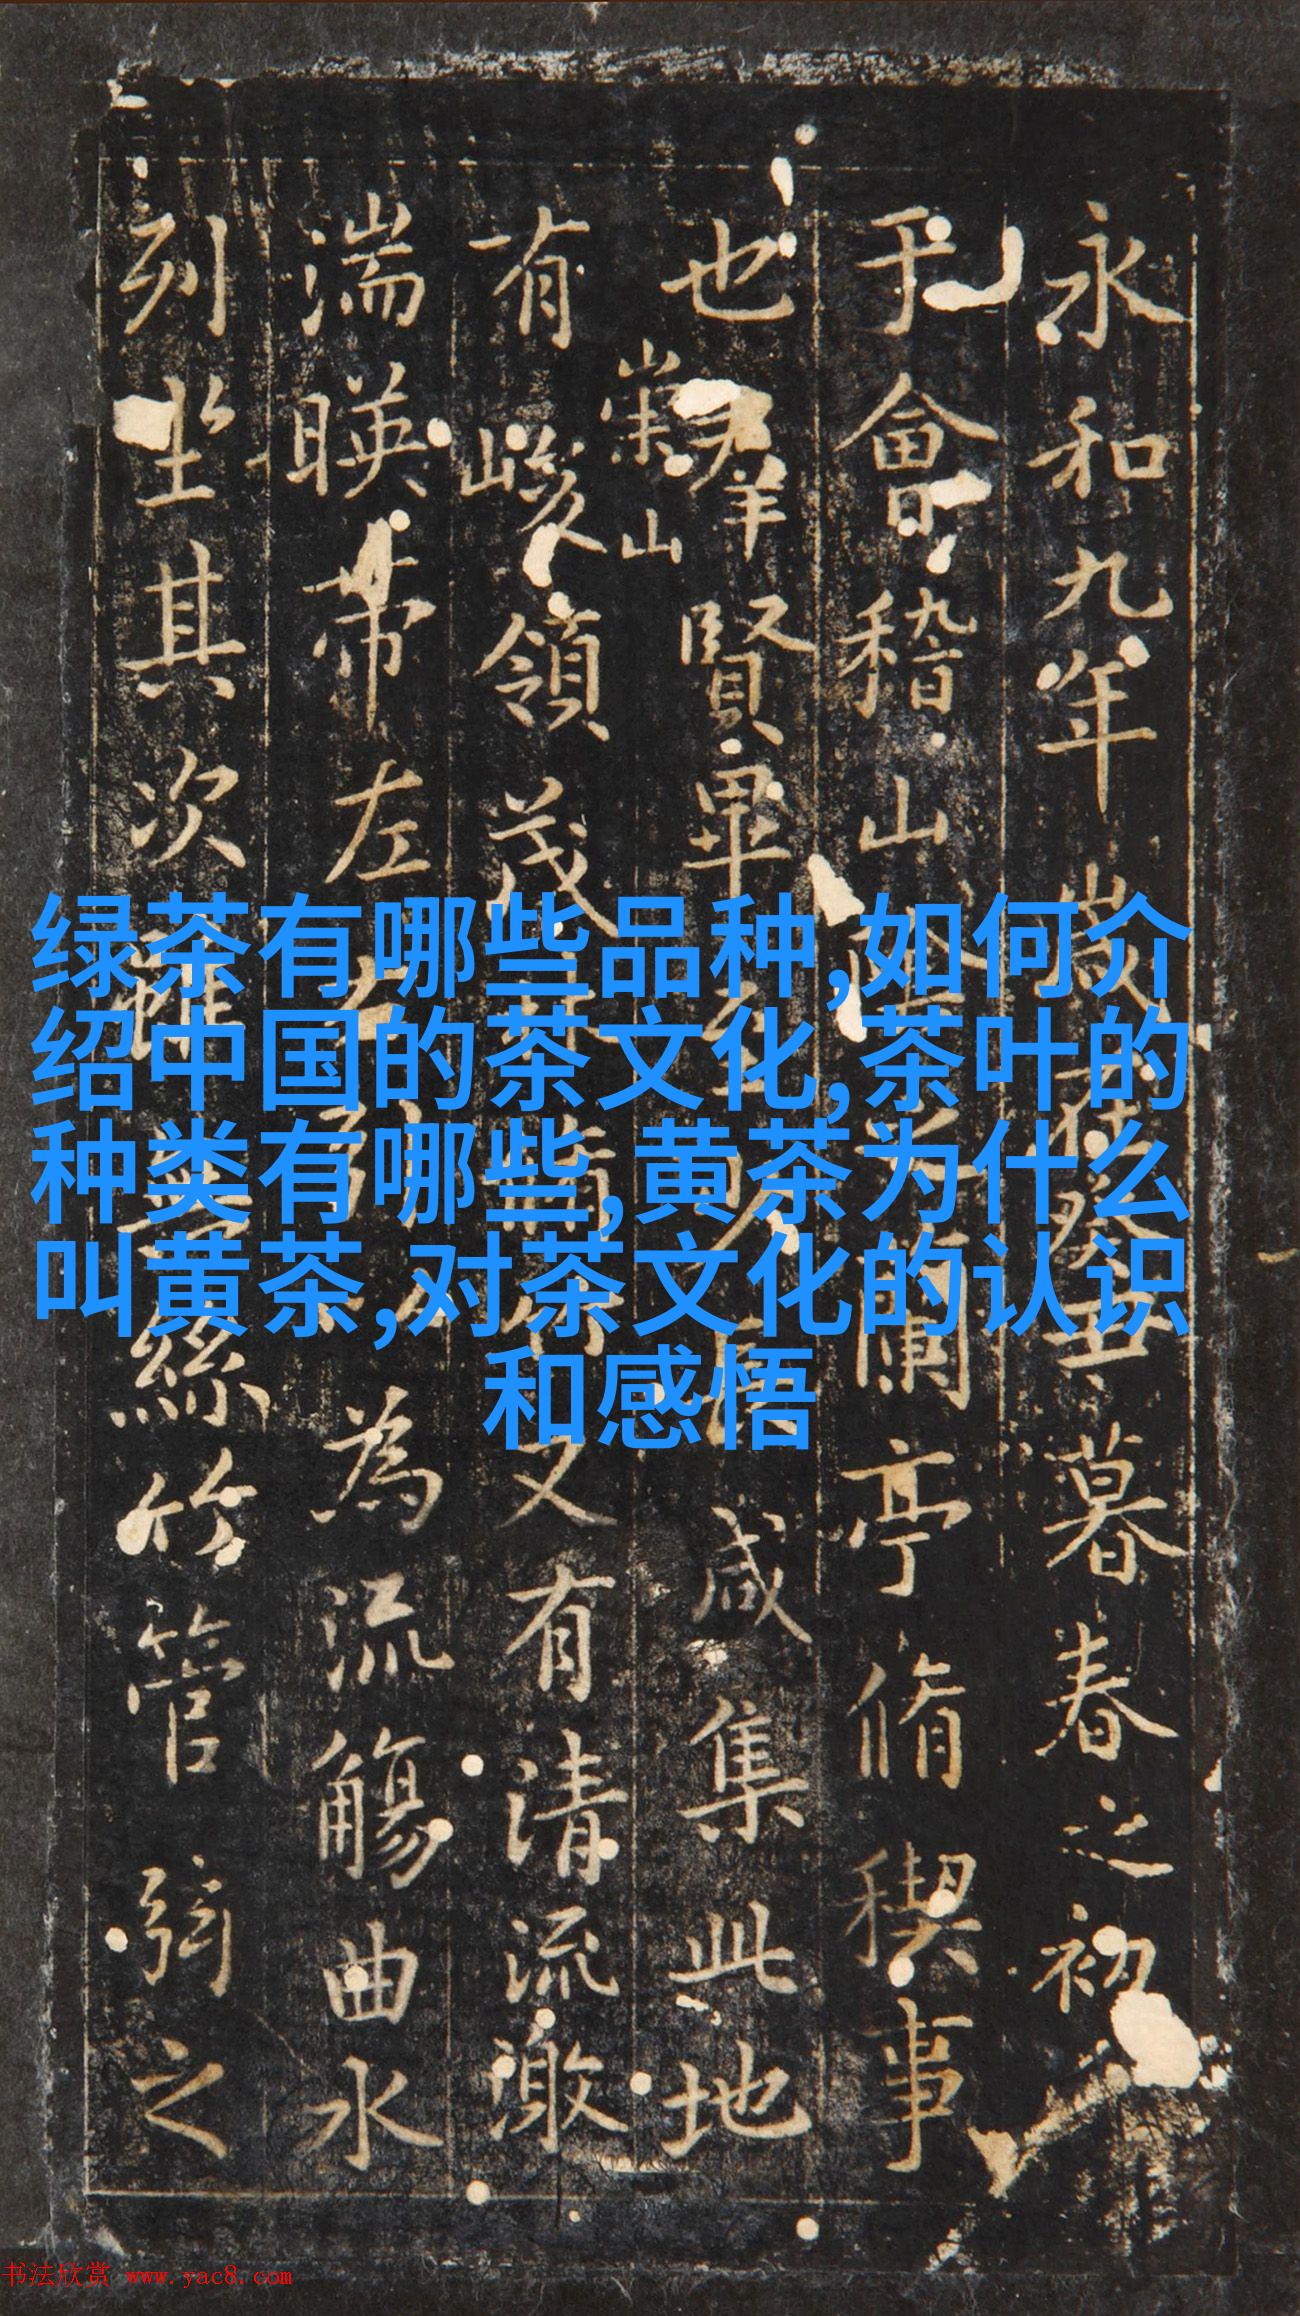 永和九年歲在癸丑暮春之初
于會稽山陰之蘭亭脩稧事
也羣賢畢至少長咸集此地
有崇山峻領茂林脩竹又有清流激
湍暎帶左右引以為流觴曲水
列坐其次雖無絲竹管弦之
绿茶有哪些品种,如何介
绍中国的茶文化,茶叶的
种类有哪些,黄茶为什么
叫黄茶,对茶文化的认识
和感悟
书法欣赏 www.yac8.com